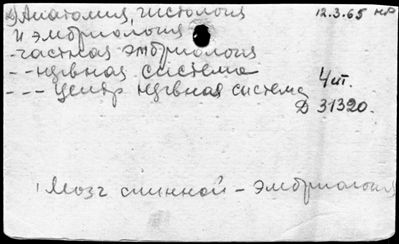 Анатомия, гистология 12.3.65
и эмбриология
- частная эмбриология
- - нервная система
- - - центр нервная система 4 шт.
Д 31320.
Мозг спинной - эмбриология